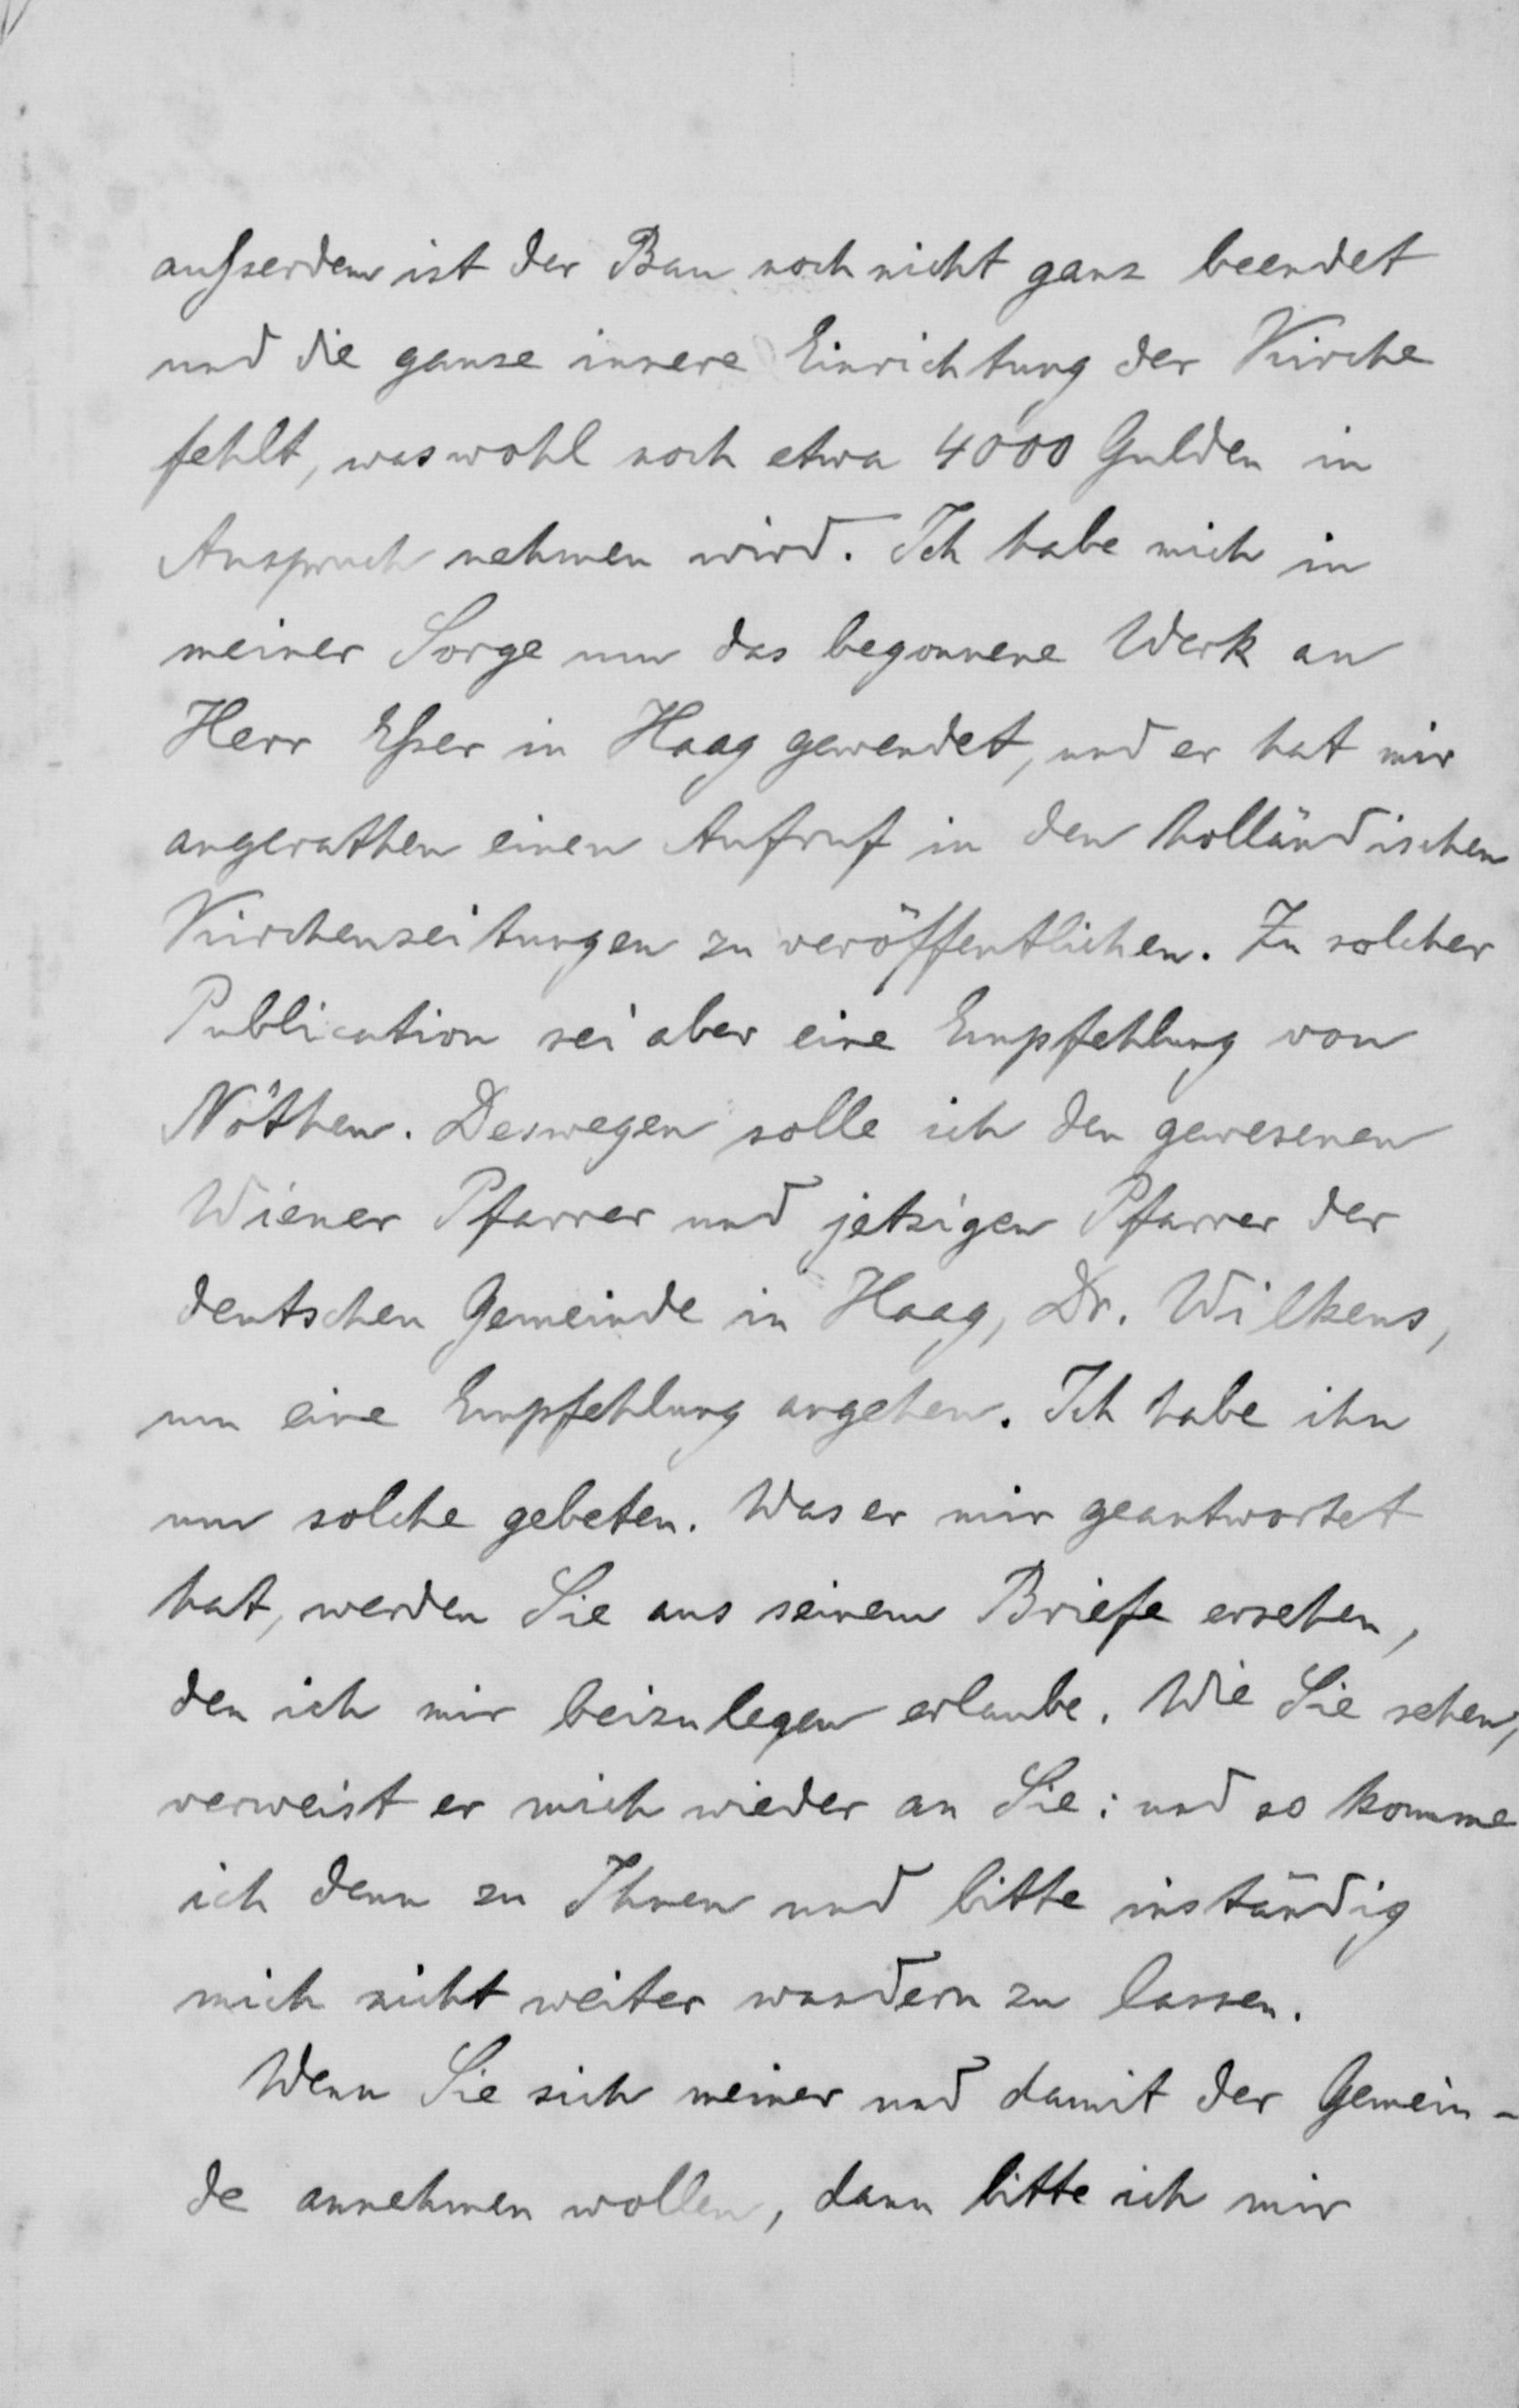 außerdem ist der Bau noch nicht ganz beendet
und die ganze innere Einrichtung der Kirche
fehlt, was wohl noch etwa 4000 Gulden in
Anspruch nehmen wird. Ich habe mich in
meiner Sorge um das begonnene Werk an
Herr Eßer in Haag gewendet, und er hat mir
angerathen einen Aufruf in den holländischen
Kirchenzeitungen zu veröffentlichen. Zu solcher
Publication sei aber eine Empfehlung von
Nöthen. Deswegen solle ich den gewesenen
Wiener Pfarrer und jetzigen Pfarrer der
deutschen Gemeinde in Haag, Dr. Wilkens,
um eine Empfehlung angehen. Ich habe ihn
um solche gebeten. Was er mir geantwortet
hat, werden Sie aus seinem Briefe ersehen,
den ich mir beizulegen erlaube. Wie Sie sehen,
verweist er mich wieder an Sie; und so komme
ich denn zu Ihnen und bitte inständig
mich nicht weiter wandern zu lassen.
Wenn Sie sich meiner und damit der Gemein-
de annehmen wollen, dann bitte ich mir